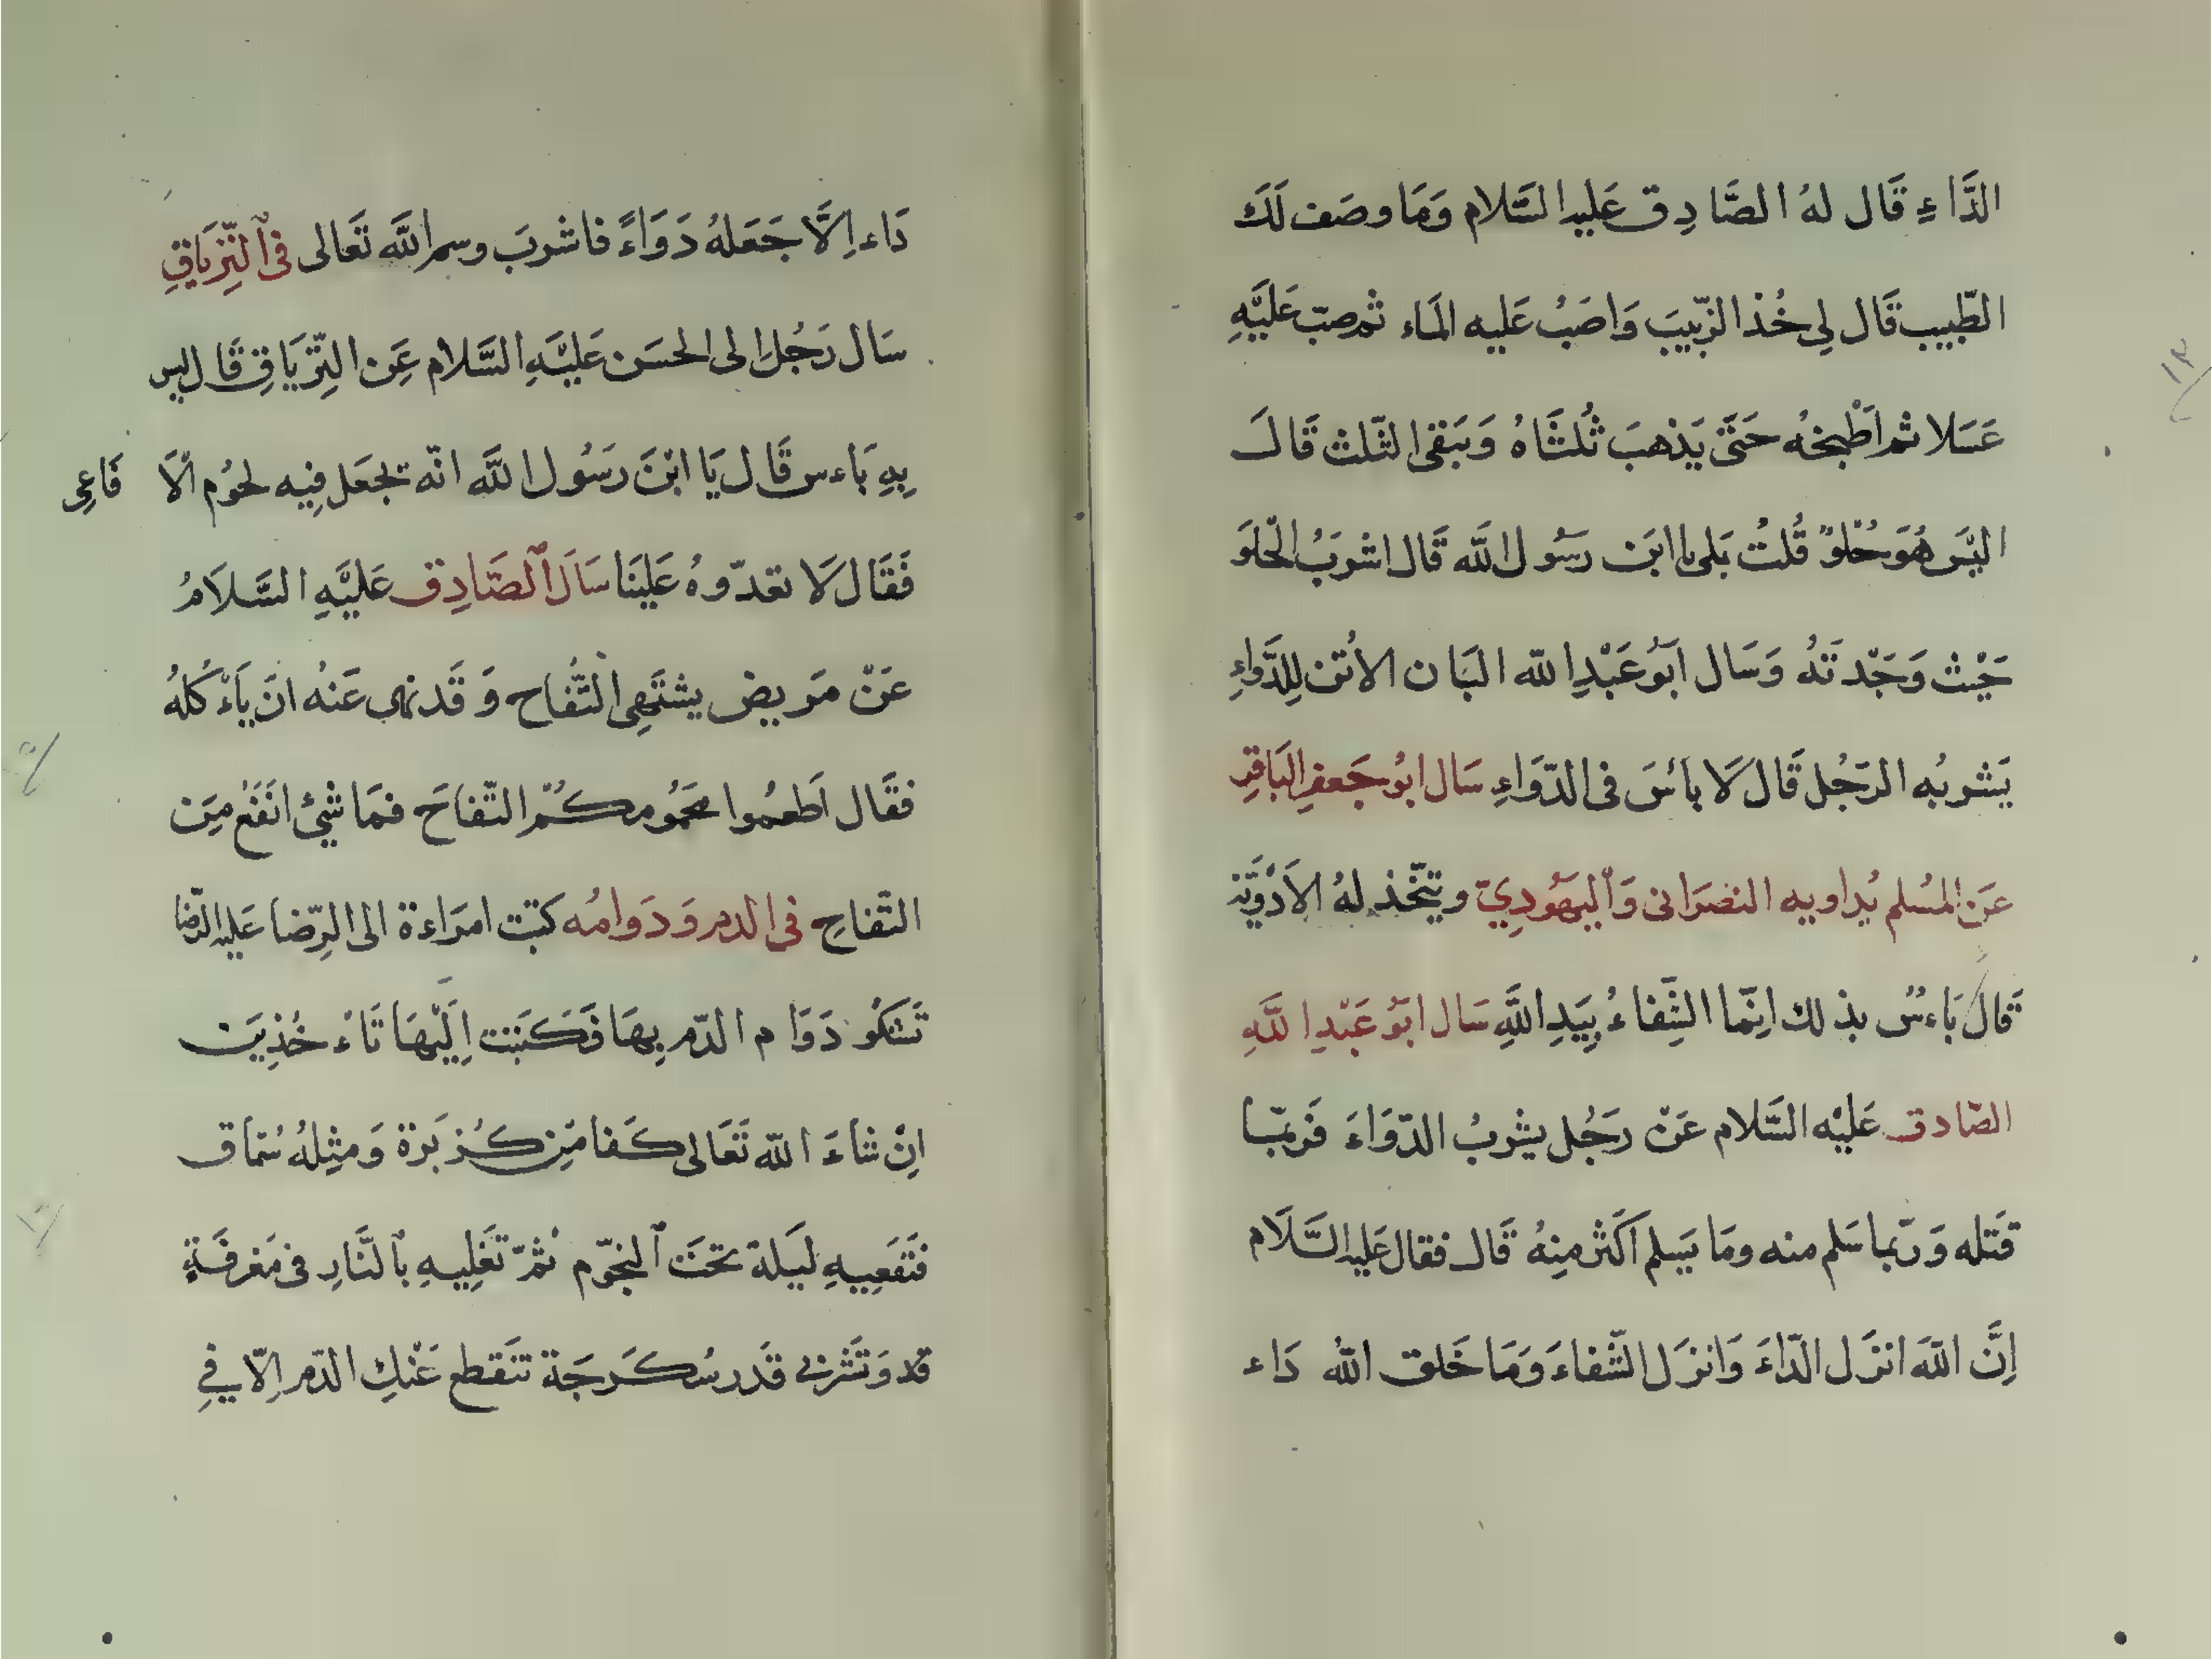 الدَّاءِ قَال لهُ الصَّادِق عَليهِ السَّلام وَمَا وصَف لَكَ
الطّبيب قَال لِي خُذ الزّبيبَ وَاصَبُ عَليه المَاء ثمّ صبّ عَليَّهِ
عَسَلا ثم اَطْبخهُ حَتّىَ يَذهبَ ثُلثَاهُ وَيَبَقى الثّلث قَالَ
اليَس هُوَ حُلوٌ قُلتُ بَلى يا ابنَ رسَوُل الله قَال اشربَُ الحّلوَ
حَيْث وَجَدّتَهُ وَسَال ابَوُ عَبْدِ الله البَان الأُتن لِلدَّواءِ
يَشربُه الرَجُل قَال لَا بأسَ فى الدّوَاءِ سَال ابوُ جَعفرِ البَاقِر
عَن المسُلم يُداويه النصَرَانى وَاَليَهُودِيّ ويتخّذ لهُ الاَدْوَيَّة
قالَ بَاءسٌ بذلك اِنّما الشِّفاءُ بِيَدِ اللَّهِ سَال ابَوُ عَبّدِ اللَّهِ
الصّادق عَليْه السَّلام عَنّ رَجُل يشربُ الدّوَاءَ فَربّما
قَتله وَربّما سَلم منه ومَا يَسلم اَكَثر مِنهُ قَال فقال عَليهِ السَّلَام
اِنَّ اللّهَ انزَل الدّاءَ وَانزَل الشّفاءَ وَمَا خَلق اللهُ دَاء
دَاء اِلَّا جَعَلهُ دَوَاءً فاشربَ وسم اللَّه تَعَالى فى اَلتِّريَاقِ
سَال رَجُل الى الحسَن عَليَّهِ السَّلام عَن التِّريَاقِ قَال ليس
بِهِ بَاءس قَال يَا ابْنَ رسَوُل اللَّه انّه يجَعَل فِيه لحوُم الَا فَاعِى
فَقَال لَا تعدّوهُ عَلينَا سَالَ اَلصَّادِق عَليَّهِ السَّلَامُ
عَنّ مَريض يشتَهِى التُّفاح وَقَد نهى عَنهُ انَ يَاءْكُلهُ
فقَال اَطعمُوا محمَوُمكُمّ التّفاحَ فمَا شيْئ انَفَعُ مِنَ
التّفاحِ فى الدم وَدَوامُه كتبَت امرَاءة الى الرِّضا عَليه الرّضا
تَشكُو دَوَام الدّم بِهَا فَكَتبَت اِليَّهَا تَاءَ خُذِينَ
اِنْ شاءَ اللّه تَعَالى كَفا مَن كُزبَرة وَمثِلهُ سُمّاق
فتَقَعِيهِ ليَلة تحَتَ اَلنجّوم ثُمّ تَغَلِيهِ باَلنَّارِ فى مَغرفَةٍ
قلا وَتَشَربى قَدر سُكَرجَة تنَقطع عَنْكِ الدّم اِلّا فيِ